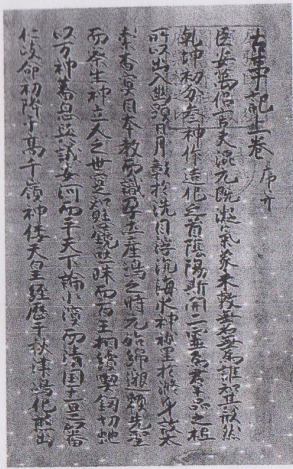 古事記上卷 序并
臣安萬侶言夫混元既凝氣象未效無名無為誰知其形然
乾坤初分參神作造化之首陰陽斯開二靈為群品之祖
所以出入幽顯日月彰於洗目浮沈海水神祇呈於滌身故太
素杳冥因本教而識孕土產嶋之時元始綿邈賴先聖
而察生神立人之世寔知懸鏡吐珠而百王相續喫釼切虵
以万神蕃息與議安河而平天下論小濱而清國土是以番
仁岐命初降于高千嶺神倭天皇經歷于秋津嶋化熊出